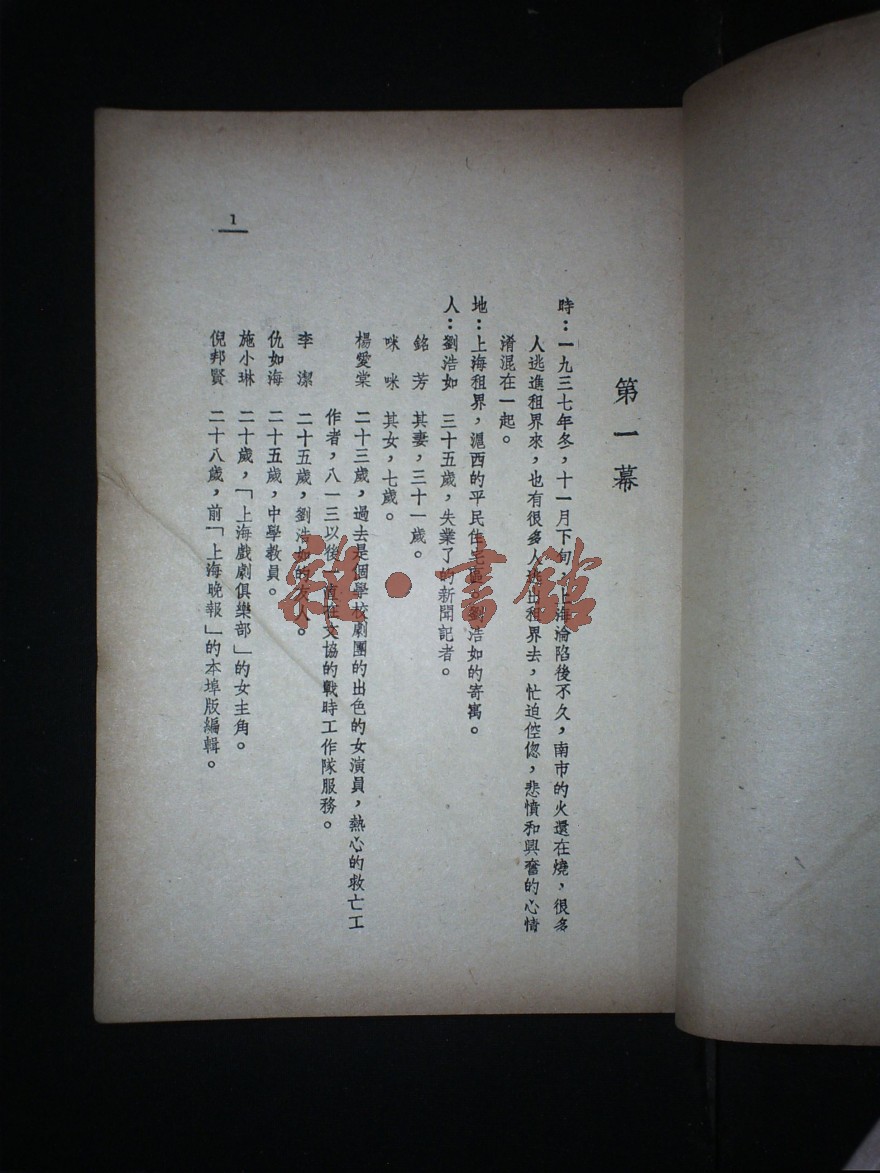 第一幕
時：一九三七年冬，十一月下旬，上海淪陷後不久，南市的火還在燒，很多
人逃進租界來，也有很多人逃出租界去，忙迫倥偬，悲憤和興奮的心情
淆混在一起。
地：上海租界，滬西的平民住宅區，劉浩如的寄寓。
人：劉浩如　三十五歲，失業了的新聞記者。
銘　芳　其妻，三十一歲。
咪　咪　其女，七歲。
楊愛棠　二十三歲，過去是個學校劇團的出色的女演員，熱心的救亡工
作者，八一三以後一直在文協的戰時工作隊服務。
李　潔　二十五歲，劉浩如的友人。
仇如海　二十五歲，中學教員。
施小琳　二十歲，「上海戲劇俱樂部」的女主角。
倪邦賢　二十八歲，前「上海晚報」的本埠版編輯。
1
雜·書館